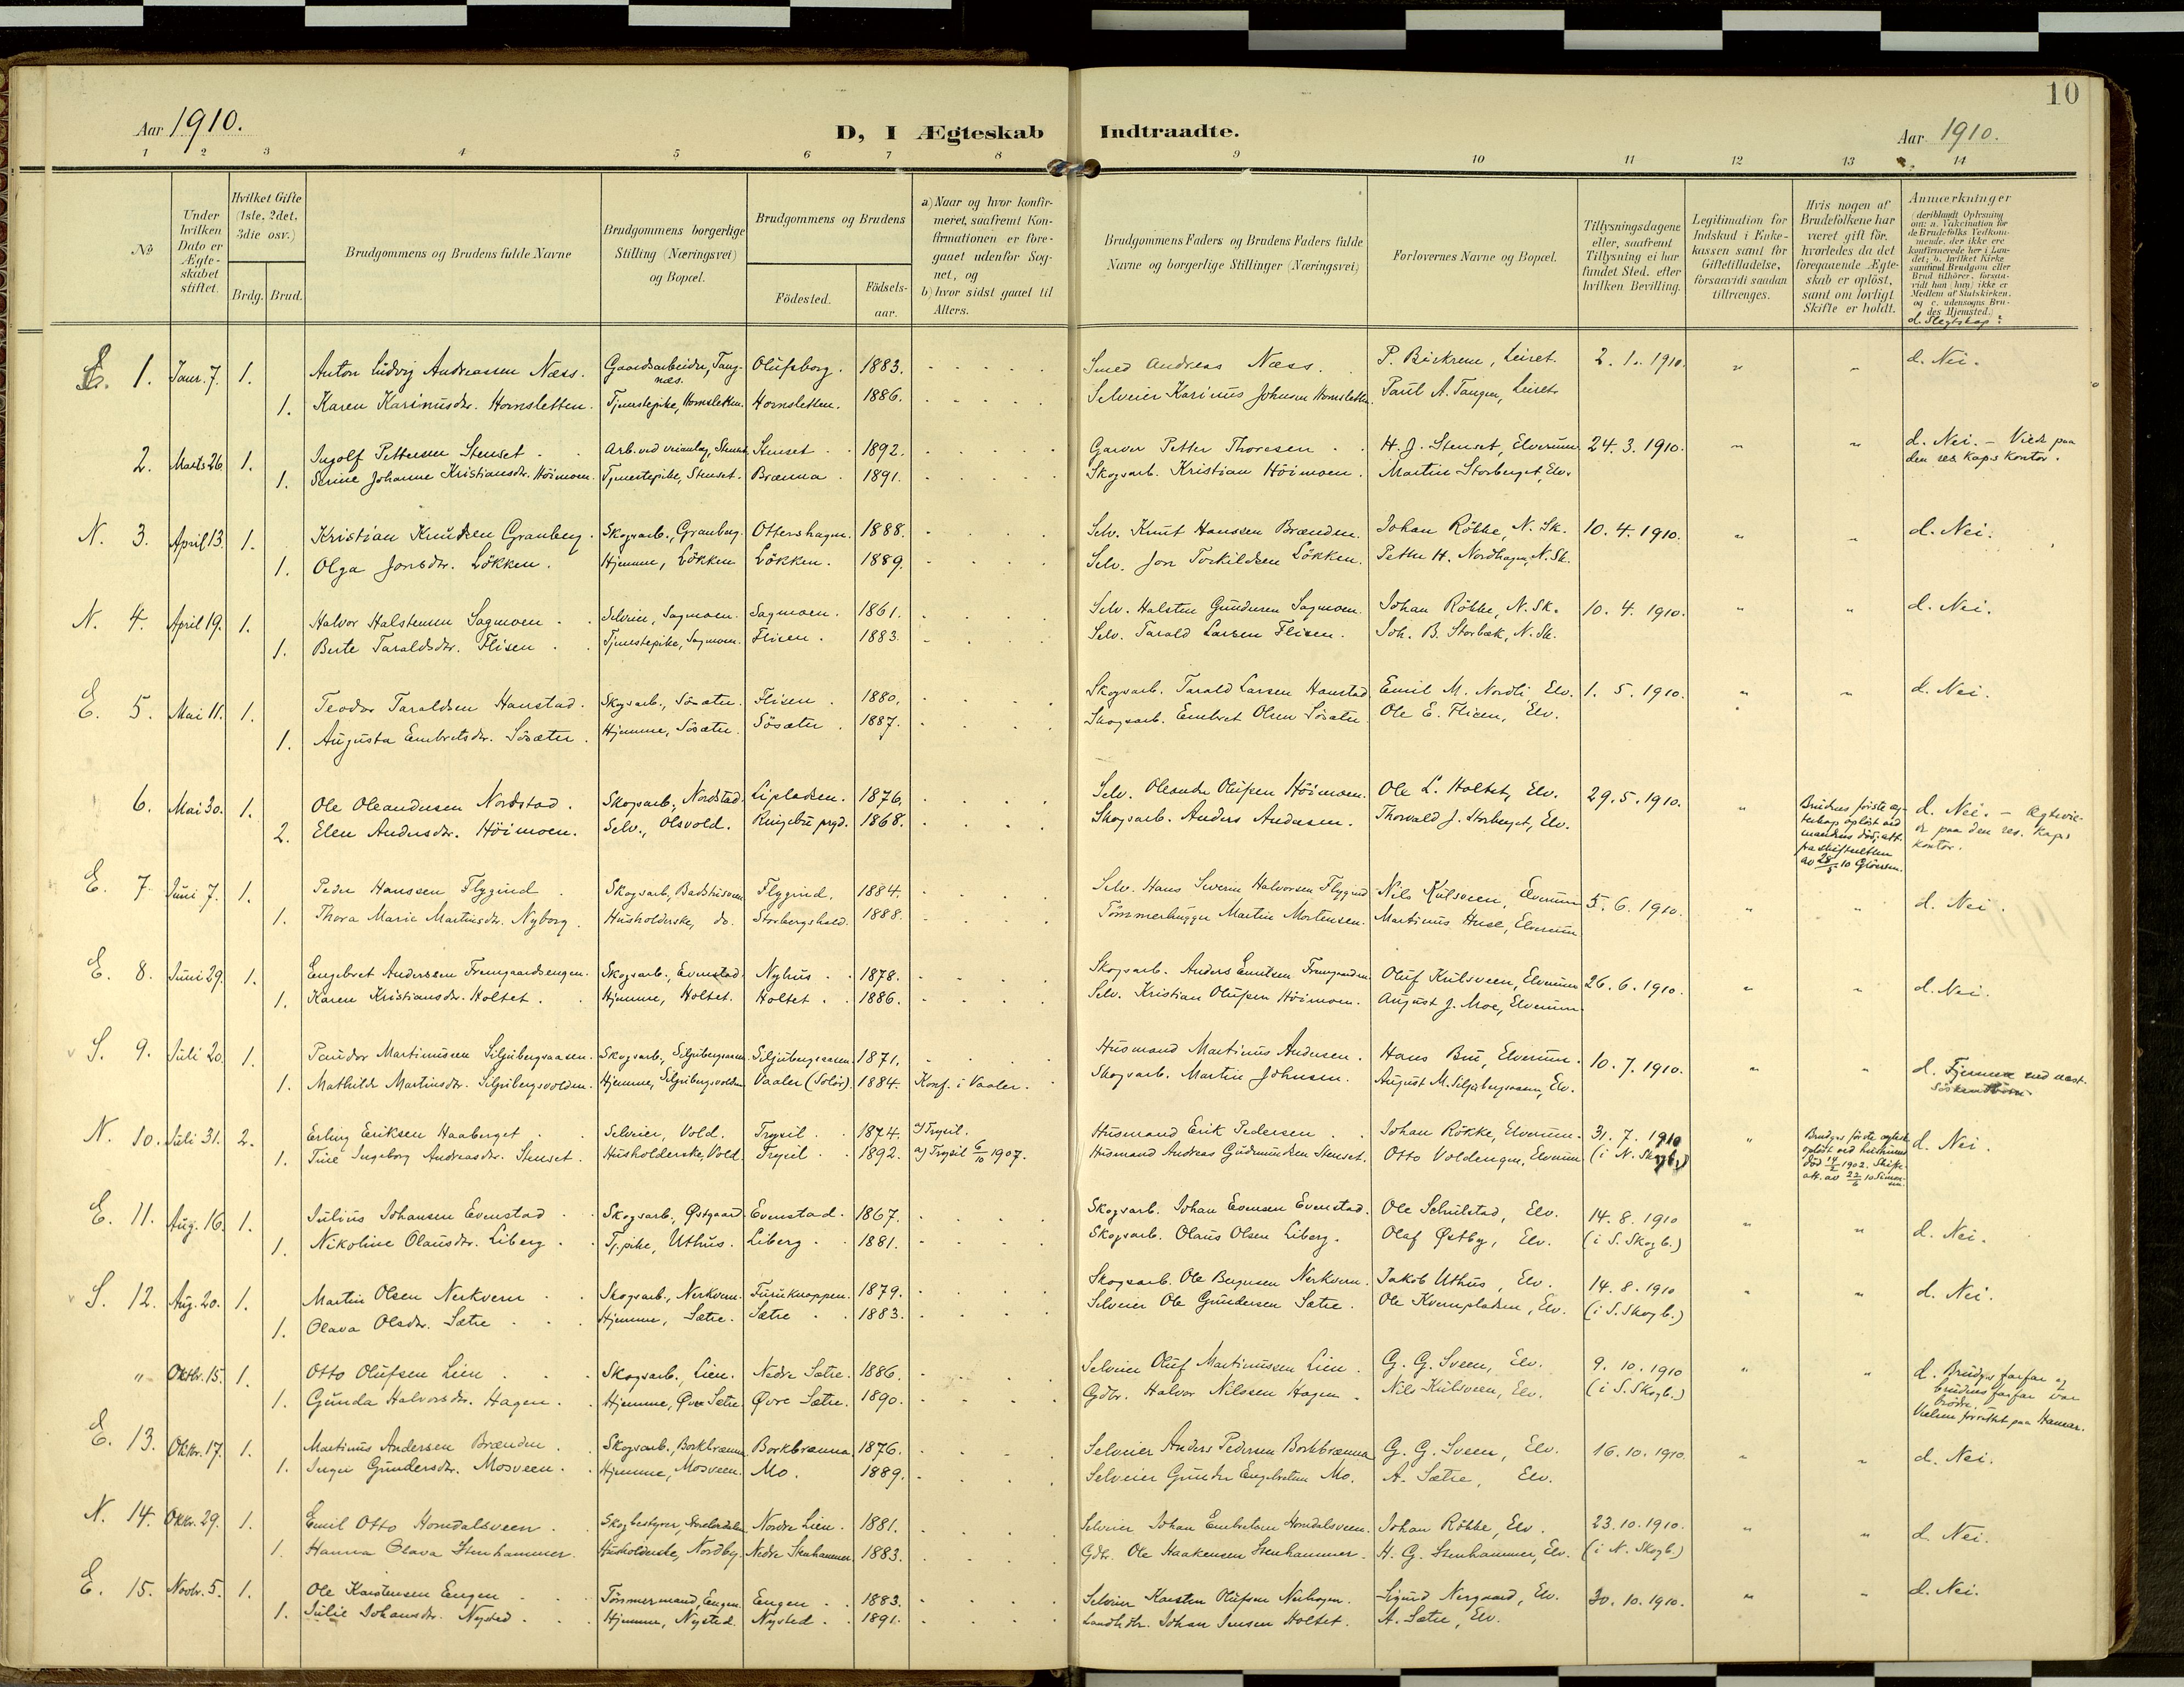 10
Aar 1910.
D, I Ægteskab Indtraadte.
Aar 1910.
1 2 3 4 5 6 7 8 9 10 11 12 13 14
No
Under hvilken Dato er Ægteskabet stiftet.
Hvilket Gifte (1ste, 2det, 3die osv.)
Brdg. Brud.
Brudgommens og Brudens fulde Navne
Brudgommens borgerlige Stilling (Næringsvei) og Bopæl.
Brudgommens og Brudens
Födested.
Födsels-aar.
a) Naar og hvor konfirmeret, saafremt Konfirmationen er foregaaet udenfor Sognet, og
b) hvor sidst gaaet til Alters.
Brudgommens Faders og Brudens Faders fulde Navne og borgerlige Stillinger (Næringsvei)
Forlovernes Navne og Bopæl.
Tillysningsdagene eller, saafremt Tillysning ei har fundet Sted, efter hvilken Bevilling.
Legitimation for Indskud i Enkekassen samt for Giftetilladelse, forsaavidt saadan tiltrænges.
Hvis nogen af Brudefolkene har været gift för, hvorledes da det foregaaende Ægteskab er oplöst, samt om lovligt Skifte er holdt.
Anmærkninger (deriblandt Oplysning om: a. Vakcination for de Brudefolks Vedkommende, der ikke ere konfirmerede her i Landet; b. hvilket Kirkesamfund Brudgom eller Brud tilhörer, forsaavidt han (hun) ikke er Medlem af Statskirken, og c. udensogns Brudes Hjemsted.)
d. Slegtskap?
E. 1. Januar. 7. 1. Anton Ludvig Andreassen Næss. Gaardsarbeider, Tangnæs. Olufsborg. 1883. Smed Andreas Næss. P. Birkrem, Leiret. 2. 1. 1910. " " d. Nei.
1. Karen Karinusdtr. Hornsletten. Tjenestepike, Hornsletten. Hornsletten. 1886. Selveier Karinus Johnsen Hornsletten. Paul A. Tangen, Leiret.
2. Marts 26. 1. Ingolf Pettersen Stenset. Arb. ved veianlæg, Stenset. Stenset. 1892. Garver Petter Thoresen. H. J. Stenset, Elverum. 24. 3. 1910. " " d. Nei. - Viedt paa den res. kap.s kontor.
1. Serine Johanne Kristiansdtr. Höimoen. Tjenestepike, Stenset. Brænna. 1891. Skogsarb. Kristian Höimoen. Martin Storberget, Elv.
N. 3. April 13. 1. Kristian Knudsen Granberg. Skogsarb., Granberg. Ottershagen. 1888. Selv. Knut Hanssen Brænden. Johan Rökke, N. Sk. 10. 4. 1910. " " d. Nei.
1. Olga Jonsdtr. Lökken. Hjemme, Lökken. Lökken. 1889. Selv. Jon Torkildsen Lökken. Petter H. Nordhagen, N. Sk.
N. 4. April 19. 1. Halvor Halstensen Sagmoen. Selveier, Sagmoen. Sagmoen. 1861. Selv. Halsten Gundersen Sagmoen. Johan Rökke, N. Sk. 10. 4. 1910. " " d. Nei.
1. Berte Taraldsdtr. Flisen. Tjenestepike, Sagmoen. Flisen. 1883. Selv. Tarald Larsen Flisen. Joh. B. Storbæk, N. Sk.
E. 5. Mai 11. 1. Teodor Taraldsen Hanstad. Skogsarb., Sösæter. Flisen. 1880. Skogsarb. Tarald Larsen Hanstad. Emil M. Nordli, Elv. 1. 5. 1910. " " d. Nei.
1. Augusta Embretsdtr. Sösæter. Hjemme, Sösæter. Sösæter. 1887. Skogsarb. Embret Olsen Sösæter. Ole E. Flisen, Elv.
6. Mai 30. 1. Ole Oleandersen Nordstad. Skogsarb., Nordstad. Lipladsen. 1876. Selv. Oleander Olufsen Höimoen. Ole L. Holtet, Elv. 29. 5. 1910. " Brudens förste ægteskap oplöst ved mandens död; att. fra skifteretten av 28/5 10 d. Nei. - Ægtevie- paa den res. kap.s kontor.
2. Elen Andersdtr. Höimoen. Selv., Olsvold. Ringebu prgd. 1868. Skogsarb. Anders Andersen. Thorvald J. Storberget, Elv.
E. 7. Juni 7. 1. Peder Hanssen Flygind. Skogsarb., Flygind. 1884. Selv. Hans Severin Halvorsen Flygind. Nils Kulsveen, Elverum. 5. 6. 1910. " " d. Nei.
1. Thora Marie Martinsdtr. Nyborg. Husholderske, do. Storbergshold. 1888. Tömmerhugger Martin Mortensen. Martinus Huse, Elverum.
E. 8. Juni 29. 1. Engebret Anderssen Fremgaardsengen. Skogsarb., Evenstad. Nyhus. 1878. Skogsarb. Anders Fremgaarden. Oluf Kulsveen, Elverum. 26. 6. 1910. " " d. Nei.
1. Karen Kristiansdtr. Holtet. Hjemme, Holtet. Holtet. 1886. Selv. Kristian Olufsen Höimoen. August J. Moe, Elverum.
S. 9. Juli 20. 1. Martinussen Siljubergsaasen. Skogsarb., Siljubergsaasen. Siljubergsaasen. 1871. Husmand Martinus Andersen. Hans Bru, Elverum. 10. 7. 1910. " " d. Fjernere end næst-söskendbörn.
1. Mathilde Martinsdtr. Siljubergsvolden. Hjemme, Siljubergsvolden. Vaaler (Solör). 1884. Konf. i Vaaler. Skogsarb. Martin Johnsen. August M. Siljubergsaasen, Elv.
N. 10. Juli 31. 2. Erling Eriksen Haaberget. Selveier, Vold. Trysil. 1874. a) Trysil. Husmand Erik Pedersen. Johan Rökke, Elverum. 31. 7. 1910 " Brudg.s förste ægtesk. oplöst ved hustruens död 14/2 1902. Skifteatt. av 22/6 10 d. Nei.
1. Tine Ingeborg Andreasdtr. Stenset. Husholderske, Vold. Trysil. 1892. a) Trysil 6/10 1907. Husmand Andreas Gudmundsen Stenset. Otto Voldengen, Elverum. (i N. Skogb.)
E. 11. Aug. 16. 1. Julius Johansen Evenstad. Skogsarb., Østgaard. Evenstad. 1867. Skogsarb. Johan Evensen Evenstad. Ole Schulstad, Elv. 14. 8. 1910 " " d. Nei.
1. Nikoline Olausdtr. Liberg. Tj.pike, Uthus. Liberg. 1881. Skogsarb. Olaus Olsen Liberg. Olaf Østby, Elv. (i S. Skogb.)
S. 12. Aug. 20. 1. Martin Olsen Nerkvern. Skogsarb., Nerkvern. Furuknappen. 1879. Skogsarb. Ole Nerkvern. Jakob Uthus, Elv. 14. 8. 1910 " " d. Nei.
1. Olava Olsdtr. Sætre. Hjemme, Sætre. Sætre. 1883. Selveier Ole Gundersen Sætre. Ole Kvernpladsen, Elv. (i S. Skogb.)
" Oktbr. 15. 1. Otto Olufsen Lien. Skogsarb., Lien. Nedre Sætre. 1886. Selveier Oluf Martinussen Lien. G. G. Sveen, Elv. 9. 10. 1910 " " d. Brudg.s farfar og brudens farfar var brödre. Vielsen forrettet paa Hamar.
1. Gunda Halvorsdtr. Hagen. Hjemme, Øvre Sætre. Øvre Sætre. 1890. Gdbr. Halvor Nilssen Hagen. Nils Kulsveen, Elv. (i S. Skogb.)
E. 13. Oktbr. 17. 1. Martinus Andersen Brænden. Skogsarb., Borkbrænna. Borkbrænna. 1876. Selveier Anders Pedersen Borkbrænna. G. G. Sveen, Elv. 16. 10. 1910. " " d. Nei.
1. Inger Gundersdtr. Mosveen. Hjemme, Mosveen. Mo. 1889. Selveier Gunder Engebretsen Mo. A. Sætre, Elv.
N. 14. Oktbr. 29. 1. Emil Otto Homdalsveen. Skogbestyrer, Nordre Lien. 1881. Selveier Johan Embretsen Homdalsveen. Johan Rökke, Elv. 23. 10. 1910. " " d. Nei.
1. Hanna Olava Stenhammer. Husholderske, Nordby. Nedre Stenhammer. 1883. Gdbr. Ole Haakensen Stenhammer. H. G. Stenhammer, Elv. (i N. Skogb.)
E. 15. Novbr. 5. 1. Ole Karstensen Engen. Tömmermand, Engen. Engen. 1883. Selveier Karsten Olufsen Nerhagen. Sigurd Nergaard, Elv. 30. 10. 1910. " " d. Nei.
1. Julie Johansdtr. Nysted. Hjemme, Nysted. Nysted. 1891. Johan Jensen Holtet. A. Sætre, Elv.